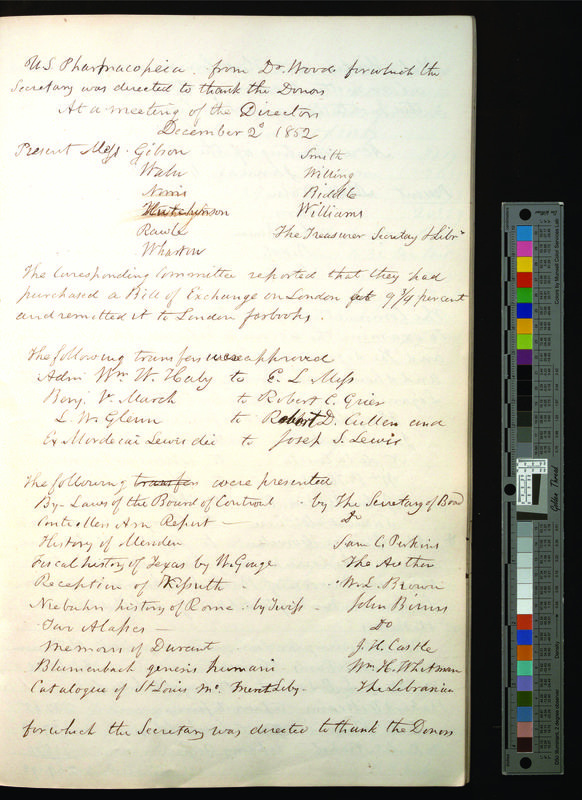 U.S. Pharmacopeia from Dr. Wood for which the
Secretary was directed to thank the Donors
At a meeting of the Directors
December 2d 1852
Present Mess. Gibson Smith
Waln Willing
Norris Biddle
Hutchinson Williams
Rawle The Treasurer Secretary & Libr
Wharton
The Corresponding Committee reported that they had
purchased a Bill of Exchange on London at 9 3/4 per cent
and remitted it to London for books.
The following transfers were approved
Adm. Wm W. Haly to E. L. Moss
Benj. V. Marsh to Robert C. Grier
L. W. Glenn to Robert D. Cullen and
Ex Mordecai Lewis dec to Joseph S. Lewis
The following transfers were presented
By-Laws of the Board of Controul by The Secretary of Board
Controllers Ann Report - Do
History of Meriden Sam C. Perkins
Fiscal history of Texas by W. Gouge The Author
Reception of Kossuth - W. L. Brown
Niebuhr history of Rome by Twiss - John Binns
Two Atlases - Do
Memoirs of Durant J. H. Castle
Blumenbach generis humani Wm H. Whitman
Catalogue of St Louis Mo. Merct Liby. The Librarian
for which the Secretary was directed to thank the Donors